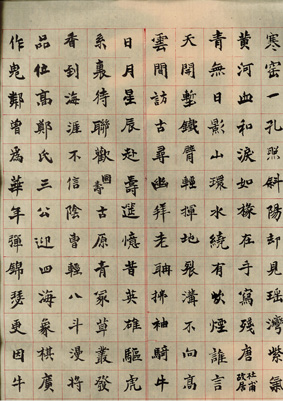 寒窑一孔照斜陽却見瑤灣紫氣
黃河血和淚如椽在手寫殘唐杜甫故居
青無日影山環水繞有炊煙誰言
天開塹鐵臂輕揮地裂溝不向高
雲間訪古尋幽拜老聃拂袖騎牛
日月星辰赴壽憶昔英雄驅虎
待聯歡古原青冢草叢發
香到海涯不信陰曹輕八斗漫將
品位高鄭氏三公迎四海象棋廣
作鬼鄭曾為華年彈錦瑟更因牛